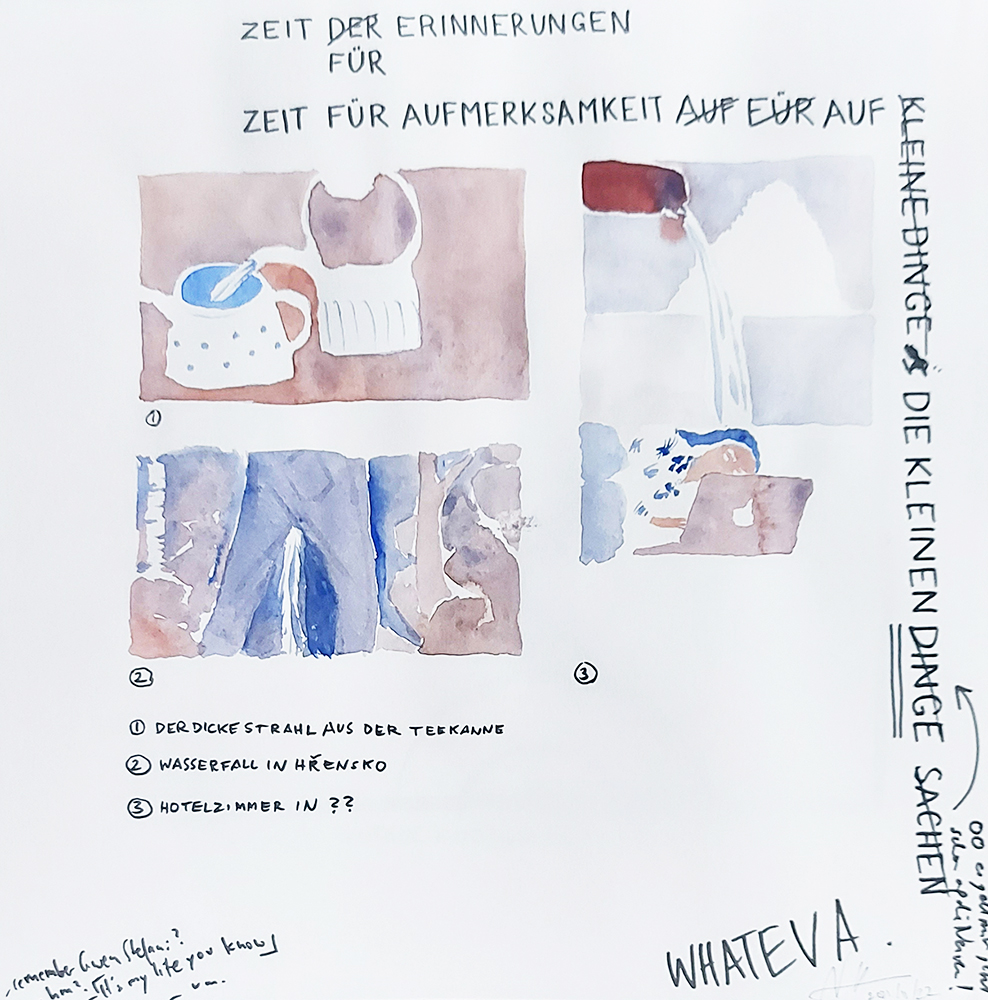 ZEIT DER ERINNERUNGEN
FÜR
ZEIT FÜR AUFMERKSAMKEIT AUF FÜR AUF
KLEINE DINGE DIE KLEINEN DINGE SACHEN
①
②
③
① DER DICKE STRAHL AUS DER TEEKANNE
② WASSERFALL IN HŘENSKO
③ HOTELZIMMER IN ??
remember Gwen Stefani?
hm? It's my life you know
WHATEVA.